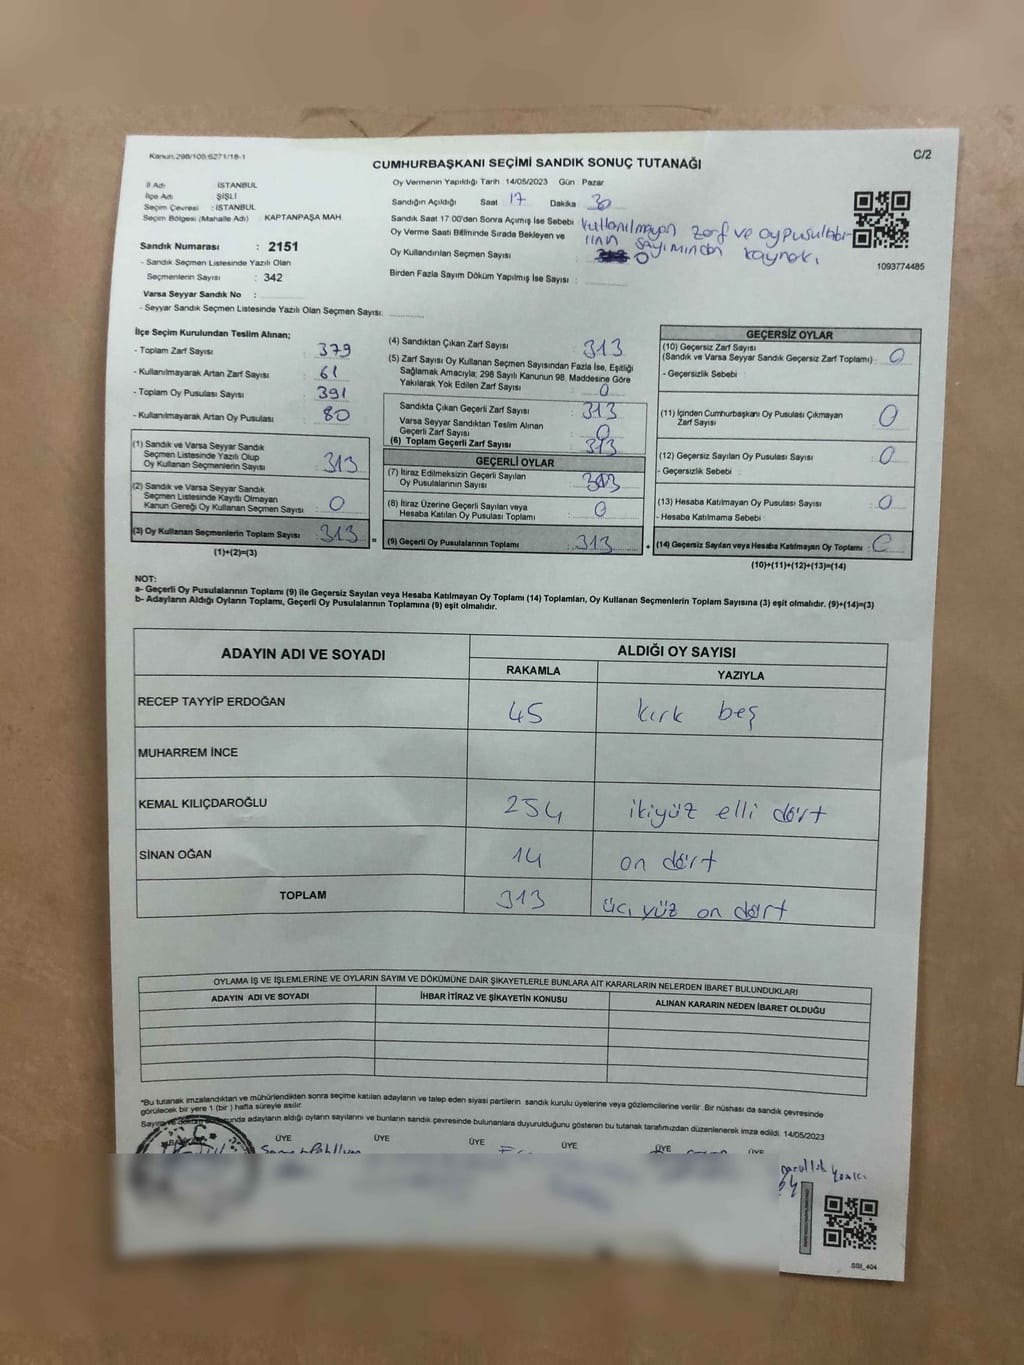 Kanun.298/105;6271/18-1
C/2
CUMHURBAŞKANI SEÇİMİ SANDIK SONUÇ TUTANAĞI
İl Adı : İSTANBUL
İlçe Adı : ŞİŞLİ
Seçim Çevresi : İSTANBUL
Seçim Bölgesi (Mahalle Adı) : KAPTANPAŞA MAH
Sandık Numarası : 2151
- Sandık Seçmen Listesinde Yazılı Olan
Seçmenlerin Sayısı : 342
Varsa Seyyar Sandık No :
- Seyyar Sandık Seçmen Listesinde Yazılı Olan Seçmen Sayısı:
Oy Vermenin Yapıldığı Tarih 14/05/2023 Gün Pazar
Sandığın Açıldığı Saat 17 Dakika 30
Sandık Saat 17:00'den Sonra Açılmış İse Sebebi : kullanılmayan zarf ve oypusulaları
Oy Verme Saati Bitiminde Sırada Bekleyen ve
nın sayımından kaynaklı
Oy Kullandırılan Seçmen Sayısı : 0
Birden Fazla Sayım Döküm Yapılmış İse Sayısı :
1093774485
İlçe Seçim Kurulundan Teslim Alınan;
- Toplam Zarf Sayısı : 379
- Kullanılmayarak Artan Zarf Sayısı : 61
- Toplam Oy Pusulası Sayısı : 391
- Kullanılmayarak Artan Oy Pusulası : 80
(1) Sandık ve Varsa Seyyar Sandık
Seçmen Listesinde Yazılı Olup
Oy Kullanan Seçmenlerin Sayısı : 313
(2) Sandık ve Varsa Seyyar Sandık
Seçmen Listesinde Kayıtlı Olmayan
Kanun Gereği Oy Kullanan Seçmen Sayısı : 0
(3) Oy Kullanan Seçmenlerin Toplam Sayısı : 313
(1)+(2)=(3)
(4) Sandıktan Çıkan Zarf Sayısı : 313
(5) Zarf Sayısı Oy Kullanan Seçmen Sayısından Fazla İse, Eşitliği
Sağlamak Amacıyla; 298 Sayılı Kanunun 98. Maddesine Göre
Yakılarak Yok Edilen Zarf Sayısı : 0
Sandıkta Çıkan Geçerli Zarf Sayısı : 313
Varsa Seyyar Sandıktan Teslim Alınan
Geçerli Zarf Sayısı : 0
(6) Toplam Geçerli Zarf Sayısı : 313
GEÇERLİ OYLAR
(7) İtiraz Edilmeksizin Geçerli Sayılan
Oy Pusulalarının Sayısı : 313
(8) İtiraz Üzerine Geçerli Sayılan veya
Hesaba Katılan Oy Pusulası Toplamı : 0
= (9) Geçerli Oy Pusulalarının Toplamı : 313
GEÇERSİZ OYLAR
(10) Geçersiz Zarf Sayısı
(Sandık ve Varsa Seyyar Sandık Geçersiz Zarf Toplamı) : 0
- Geçersizlik Sebebi :
(11) İçinden Cumhurbaşkanı Oy Pusulası Çıkmayan
Zarf Sayısı : 0
(12) Geçersiz Sayılan Oy Pusulası Sayısı : 0
- Geçersizlik Sebebi :
(13) Hesaba Katılmayan Oy Pusulası Sayısı : 0
- Hesaba Katılmama Sebebi :
+ (14) Geçersiz Sayılan veya Hesaba Katılmayan Oy Toplamı : 0
(10)+(11)+(12)+(13)=(14)
NOT:
a- Geçerli Oy Pusulalarının Toplamı (9) ile Geçersiz Sayılan veya Hesaba Katılmayan Oy Toplamı (14) Toplamları, Oy Kullanan Seçmenlerin Toplam Sayısına (3) eşit olmalıdır. (9)+(14)=(3)
b- Adayların Aldığı Oyların Toplamı, Geçerli Oy Pusulalarının Toplamına (9) eşit olmalıdır.
ADAYIN ADI VE SOYADI
ALDIĞI OY SAYISI
RAKAMLA YAZIYLA
RECEP TAYYİP ERDOĞAN 45 kırk beş
MUHARREM İNCE
KEMAL KILIÇDAROĞLU 254 ikiyüz elli dört
SİNAN OĞAN 14 on dört
TOPLAM 313 üç yüz on dört
OYLAMA İŞ VE İŞLEMLERİNE VE OYLARIN SAYIM VE DÖKÜMÜNE DAİR ŞİKAYETLERLE BUNLARA AİT KARARLARIN NELERDEN İBARET BULUNDUKLARI
ADAYIN ADI VE SOYADI İHBAR İTİRAZ VE ŞİKAYETİN KONUSU ALINAN KARARIN NEDEN İBARET OLDUĞU
"Bu tutanak imzalandıktan ve mühürlendikten sonra seçime katılan adayların ve talep eden siyasi partilerin sandık kurulu üyelerine veya gözlemcilerine verilir. Bir nüshası da sandık çevresinde
görülecek bir yere 1 (bir ) hafta süreyle asılır.
adayların aldığı oyların sayılarını ve bunların sandık çevresinde bulunanlara duyurulduğunu gösteren bu tutanak tarafımızdan düzenlenerek imza edildi. 14/05/2023
BAŞKAN ÜYE ÜYE ÜYE ÜYE ÜYE ÜYE
SSI_404